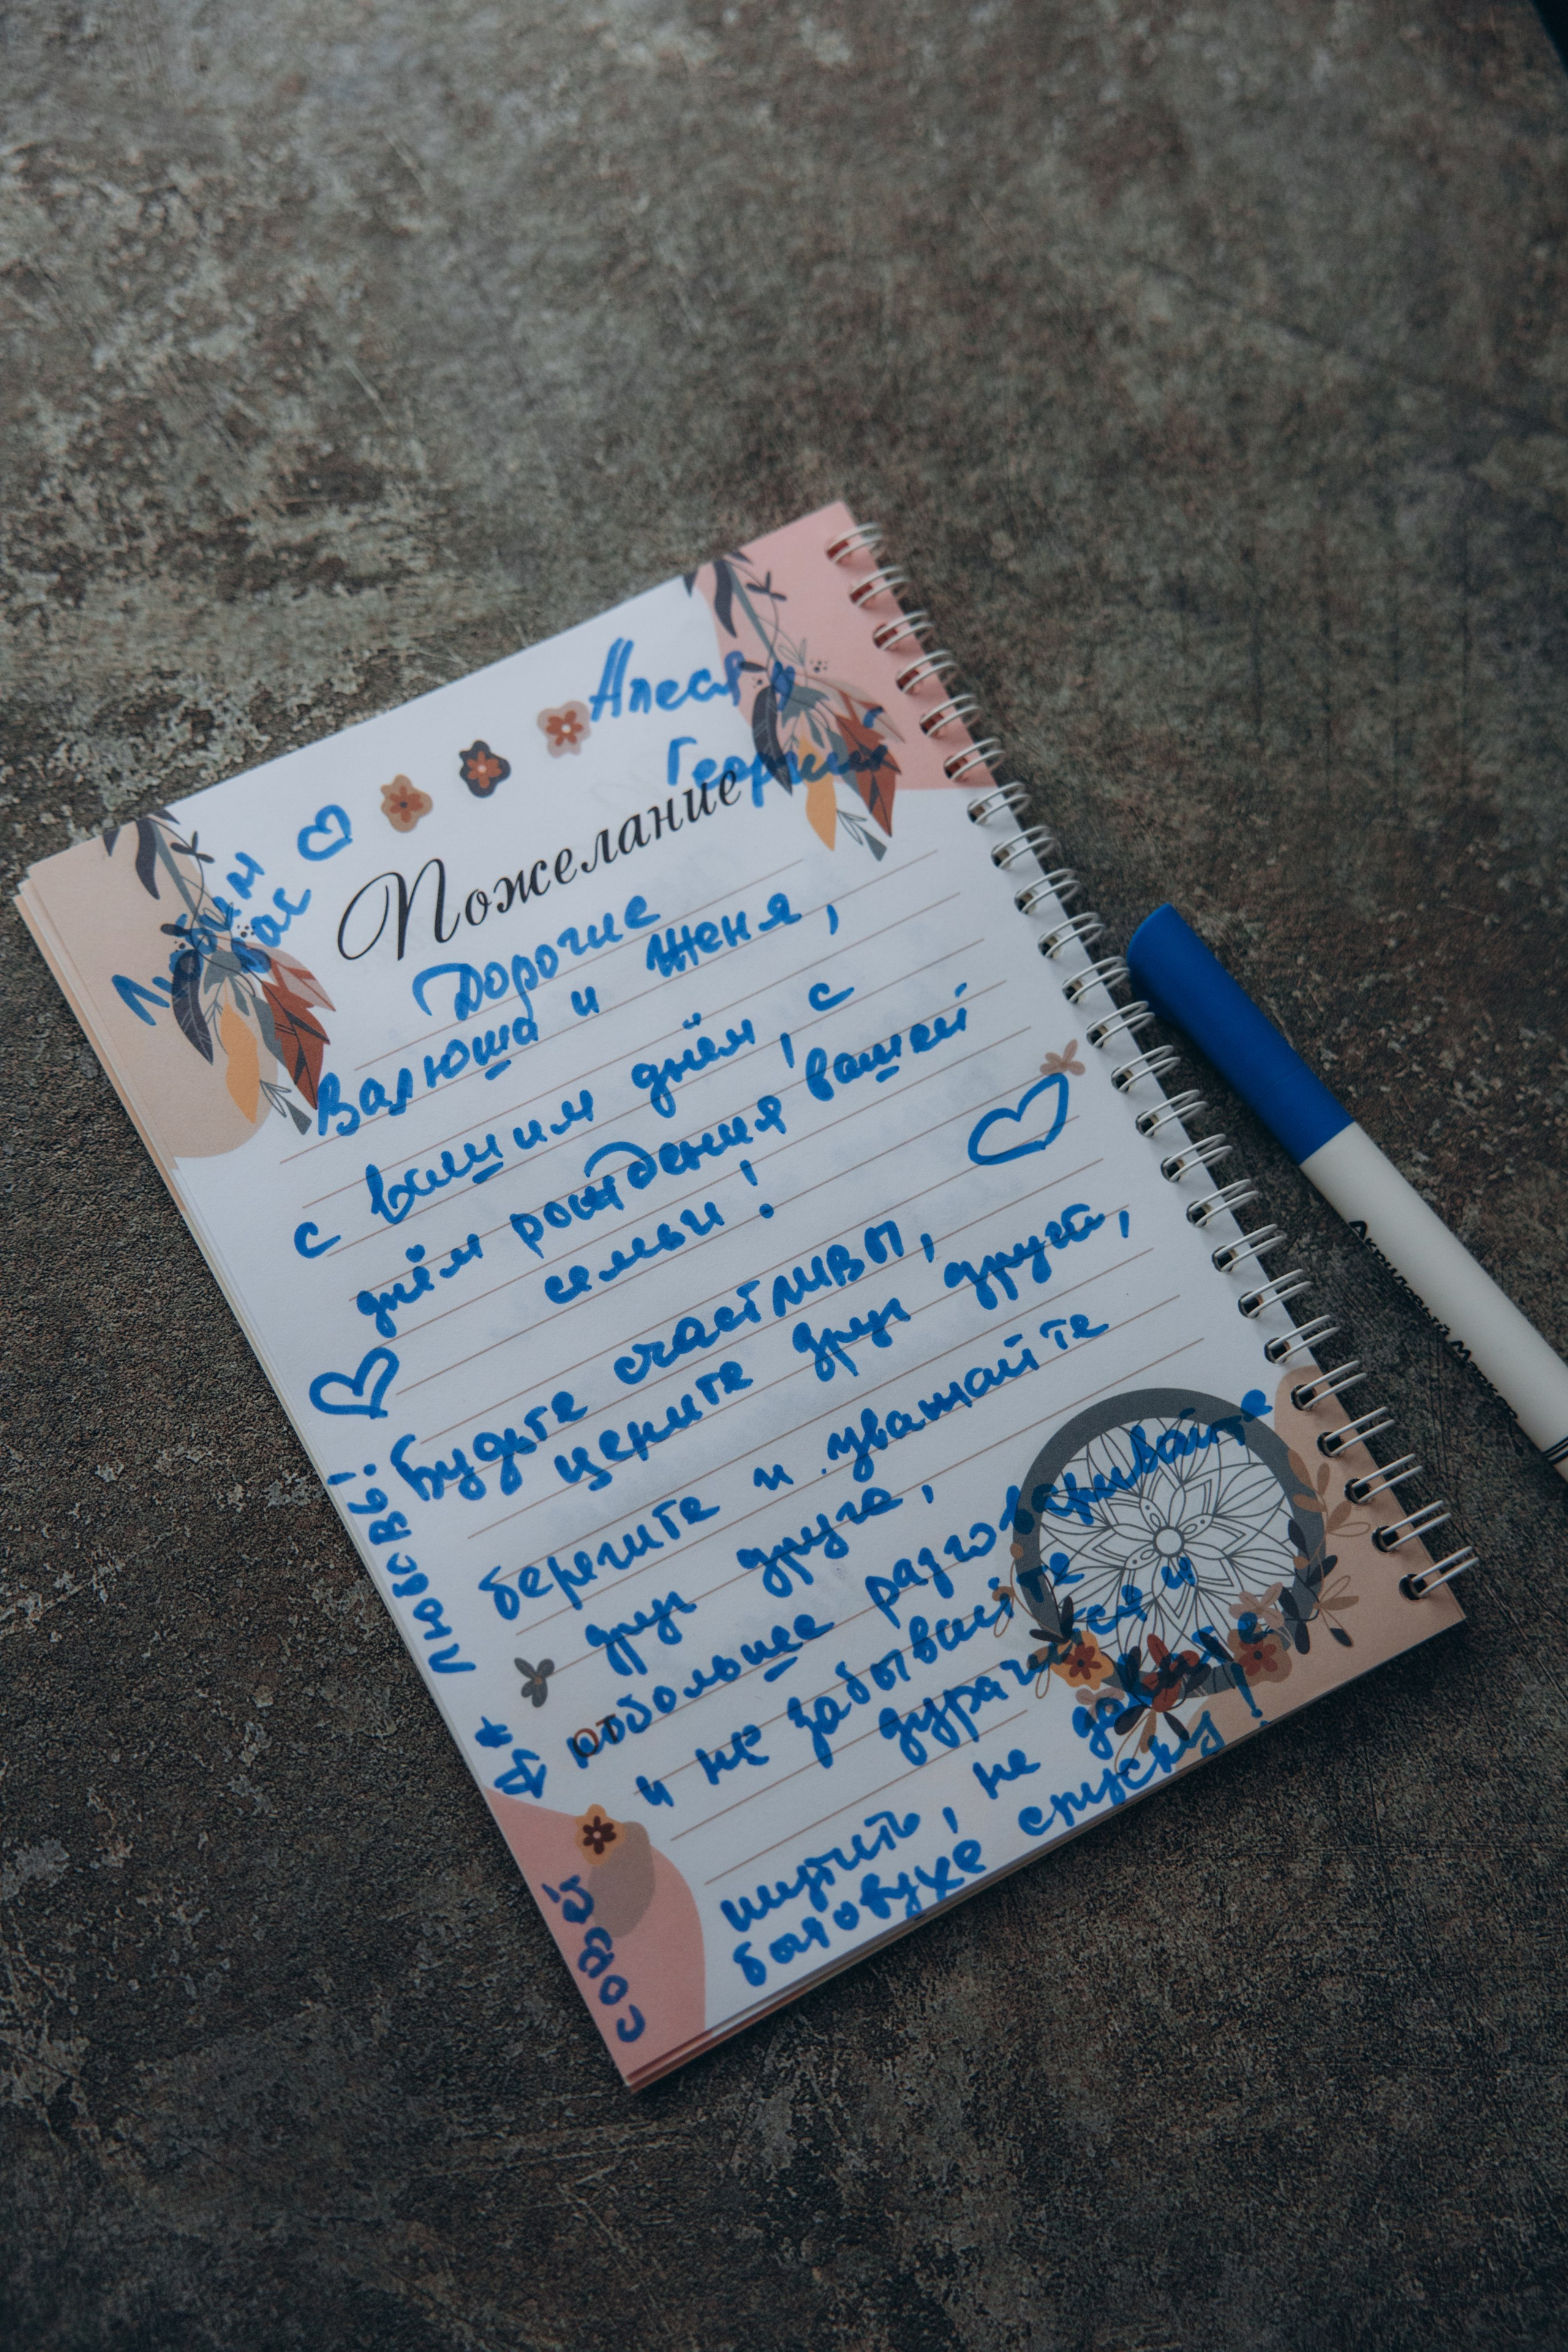 Алеся и
Георгий
Любим
вас
Пожелание
Дорогие
Валюша и Женя,
с вашим днём, с
днём рождения вашей
семьи!
Будьте счастливы,
цените друг друга,
берегите и уважайте
друг друга,
побольше разговаривайте
От
и не забывайте
дурачится и
шутить, не давайте
бытовухе спуску!
Да
Любовь!
совет
Акриловый Маркер